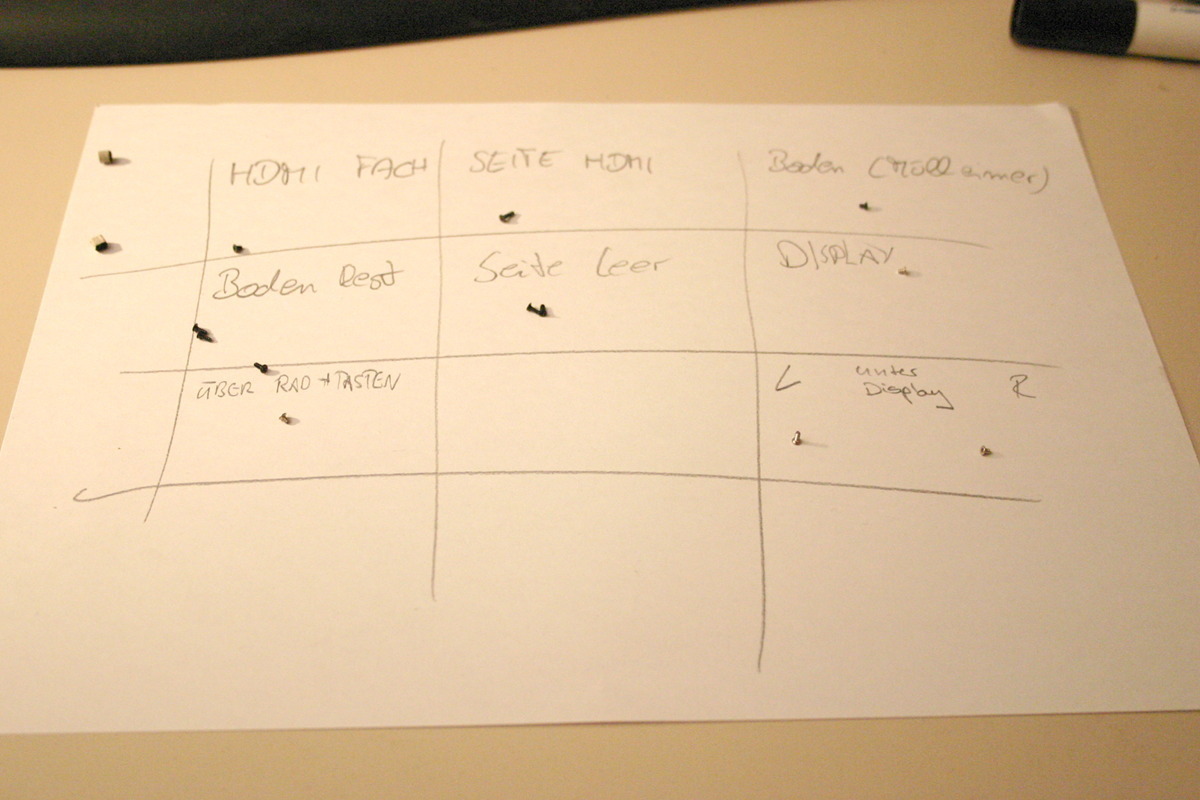 HDMI FACH
SEITE HDMI
Boden (Mülleimer)
Boden Rest
Seite Leer
DISPLAY
ÜBER RAD + TASTEN
L
unter
Display
R